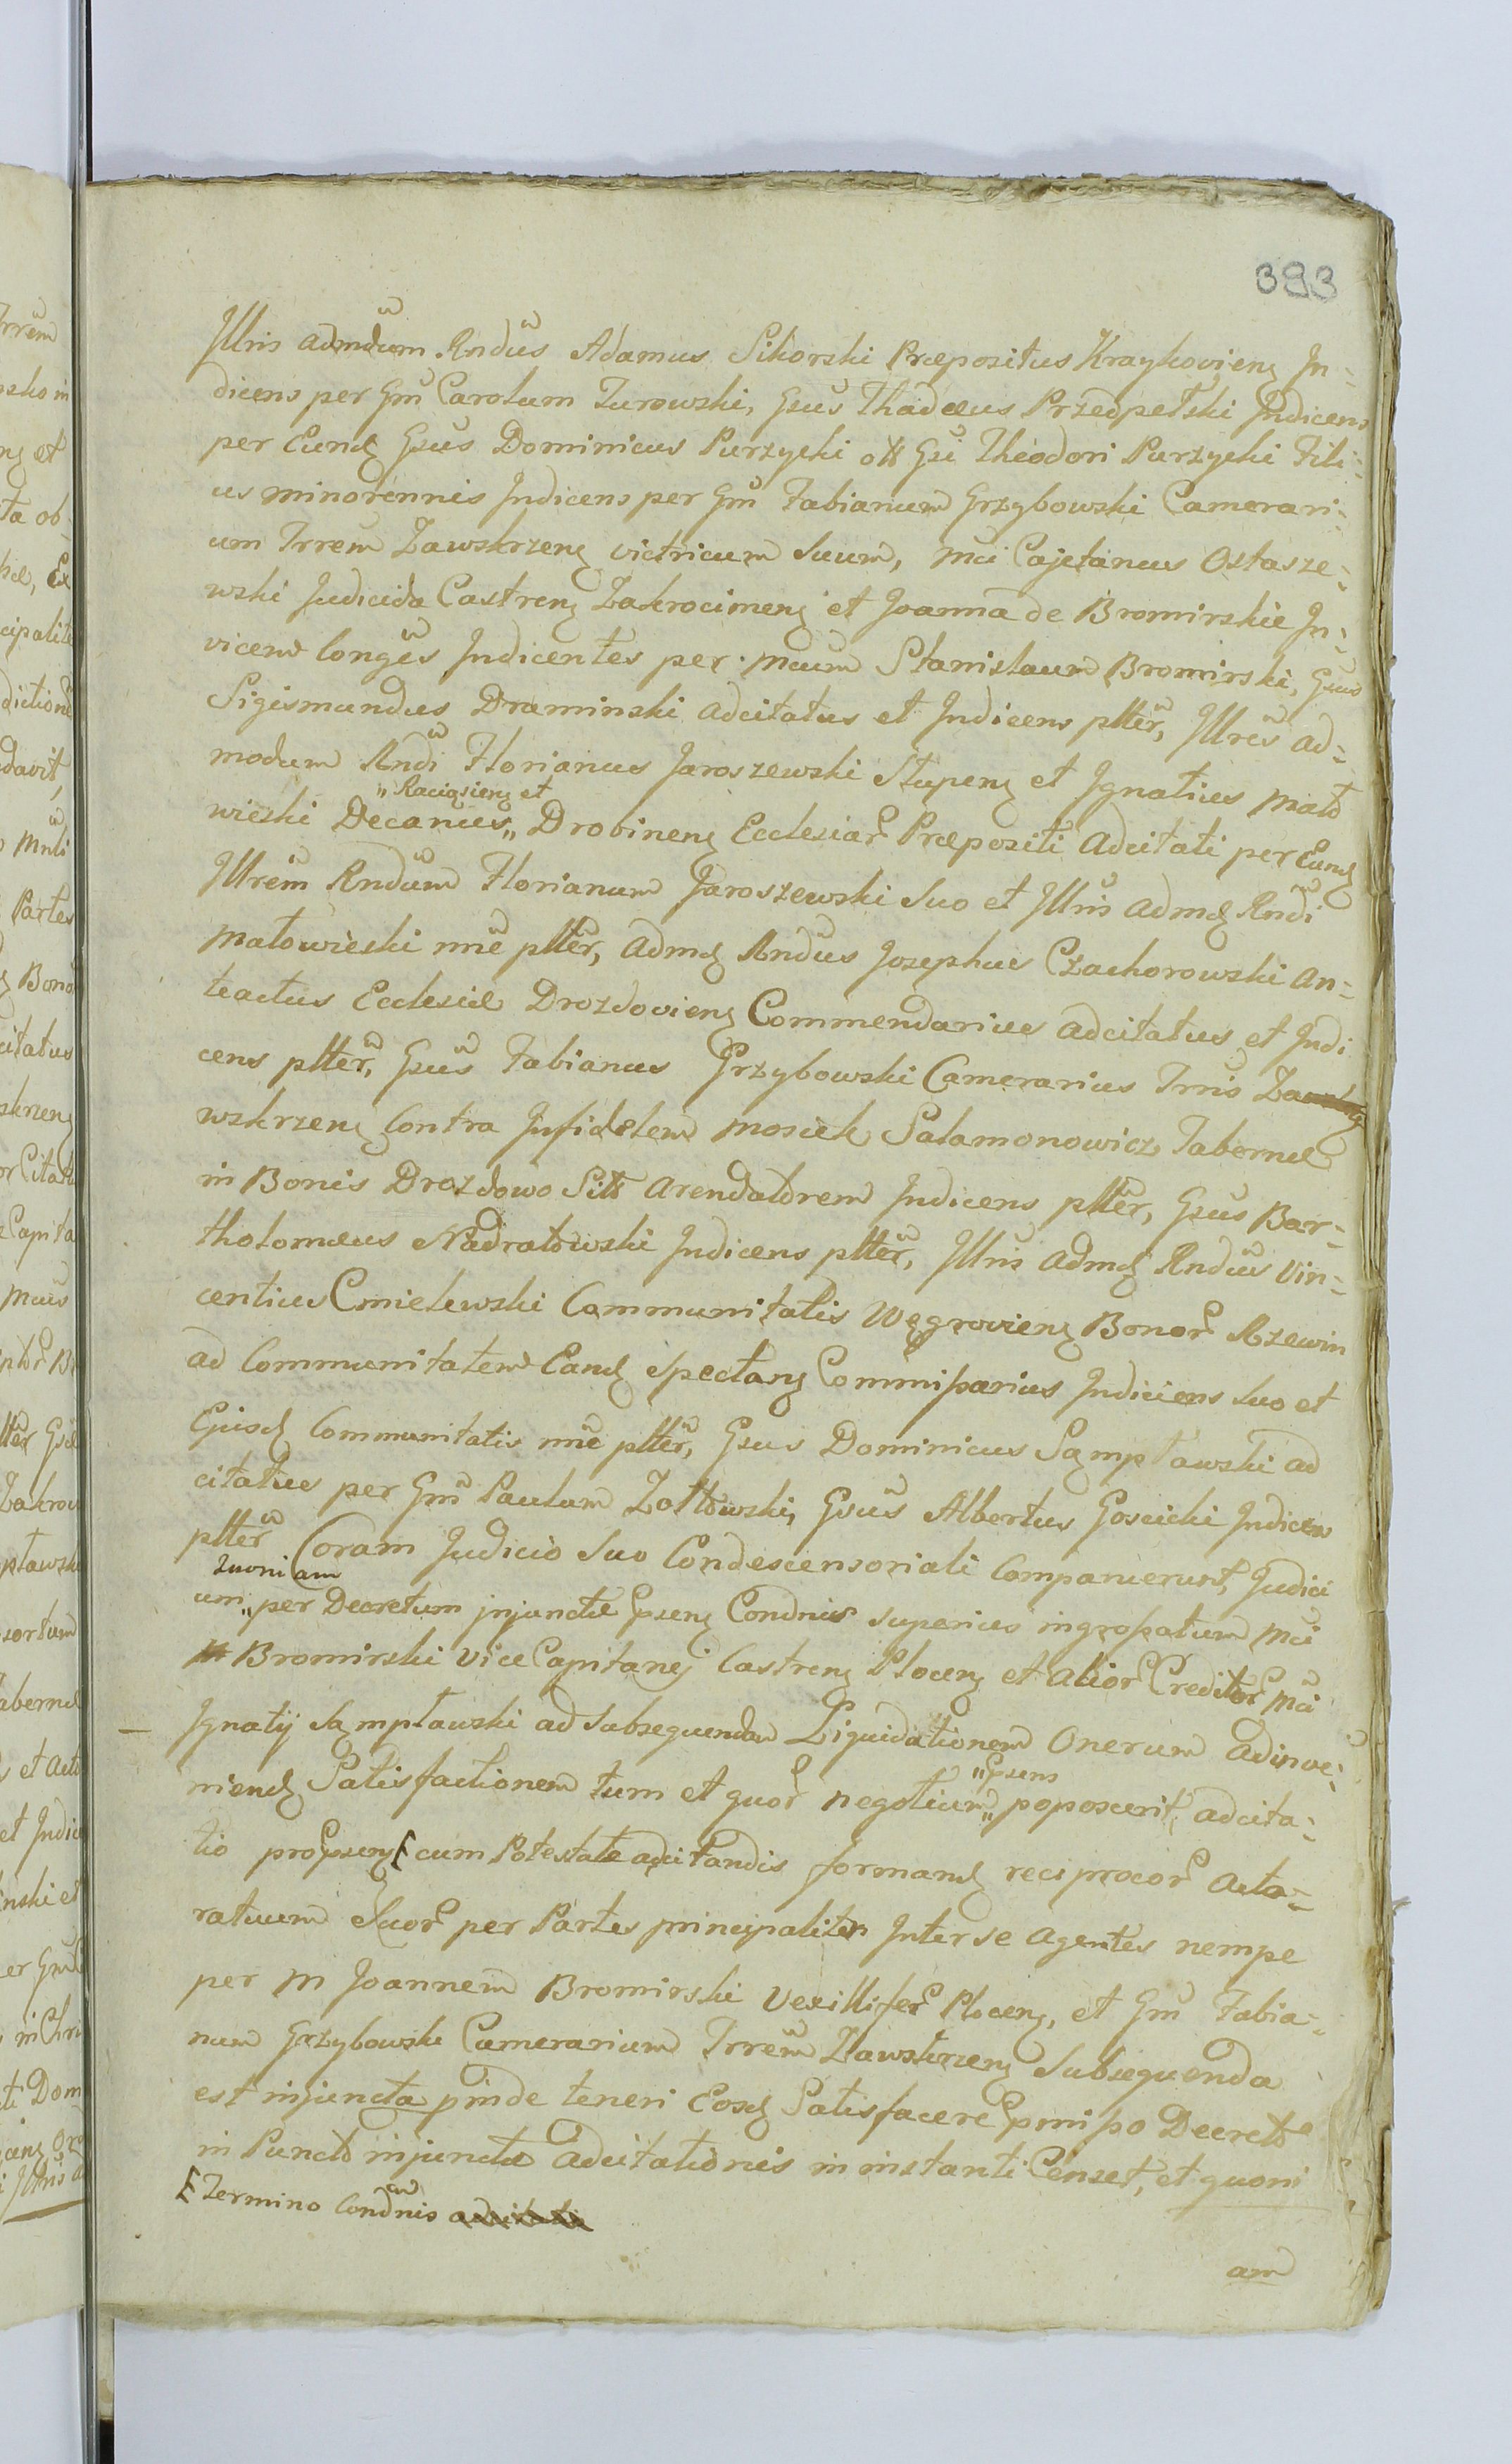 393
Illris admdum Rndus Adamus Sikorski Præpositus Kraykovieng In=
dicens per Gm Carolum Turowski, Gsus Thadæus Przedpełski Indicens
per Eundg Gsus Dominicus Purzycki olt Gsi Theodori Purzycki Fili=
us minorennis Indicens per Gm Fabianum Grzybowski Camerari=
um Trrem Zawskrzeng victricum Suum, Mci Cajetanus Ostasze=
wski Judicida Castreng Zakrocimeng et Joanna de Bromirskie In=
vicem Conges Indicentes per Mcum Stanislaum Bromirski, Gsus
Sigismundus Draminski adcitatus et Indicens pltter, Illres ad=
modum Rndi Florianus Jaroszewski Stupeng et Ignatius Mało
wieski Decanus „ Raciąsieng et „ Drobineng Ecclesiar Præpositi adcitati per Eundg
Illrem Rndum Florianum Jaroszewski Suo et Illris admdg Rndi
Małowieski nne pltter, admdg Rndus Josephus Czachorowski an=
teactus Ecclesiæ Drozdovieng Commendarius adcitatus et Indi
cens pltter, Gsus Fabianus Grzybowski Camerarius Trris Za
wskrzeng Contra Infidelem Mosiek Salamonowicz Tabernæ
in Bonis Drozdowo Sitt Arendatorem Indicens pltter, Gsus Bar=
tholomæus Nadratowski Indicens pltter, Illris admdg Rndus Vin=
centius Cmielewski Communitatis Węgrovieng Bonor Rzewin
ad Communitatem Eandg Spectang Commissarius Indicens Suo et
Ejusdg Communitatis nne pltter, Gsus Dominicus Sąmpławski ad
citatus per Gm Paulum Zołtowski, Gsus Albertus Goscicki Indicens
pltter Coram Judicio Suo Condescensoriali Comparuerunt, Judici
um „ Quoniam per Decretum injunctæ Psens Condnis superius ingrossatum Mci
Bromirski ViceCapitanej Castreng Ploceng et alior Creditor Mci
Ignatij Sąmpławski ad Subsequendam Liquidationem Onerum adinve=
niendg Satisfactionem tum et quor negotium „ Psens „ poposcerit, adcita=
tio pro Pseng [ cum Potestate adcitandis formandg reciprocor Acto=
ratuum Suor per Partes principaliter Inter se Agentes nempe
per M Joannem Bromirski Vexillifer Ploceng, et Gm Fabia=
num Grzybowski Camerarium Trrem Zawskrzeng Subsequenda
est injuncta pinde teneri Eosdg Satisfacere Pmisso Decreto
in Puncto injunctæ adcitationis in instanti Censet, et quoni
[ Termino Condnis
am